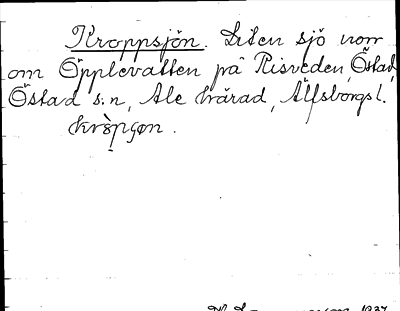 Kroppsjön. Liten sjö norr
om Öpplevatten på Risveden, Östad,
Östad s:n, Ale härad, Älfsborgs l.